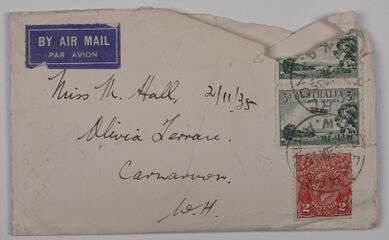 BY AIR MAIL
PAR AVION
Miss M. Hall, 2/11/35
Olivia Terrace.
Carnarvon.
W.A.
3d AUSTRALIA 3d
AUSTRALIA
2 2